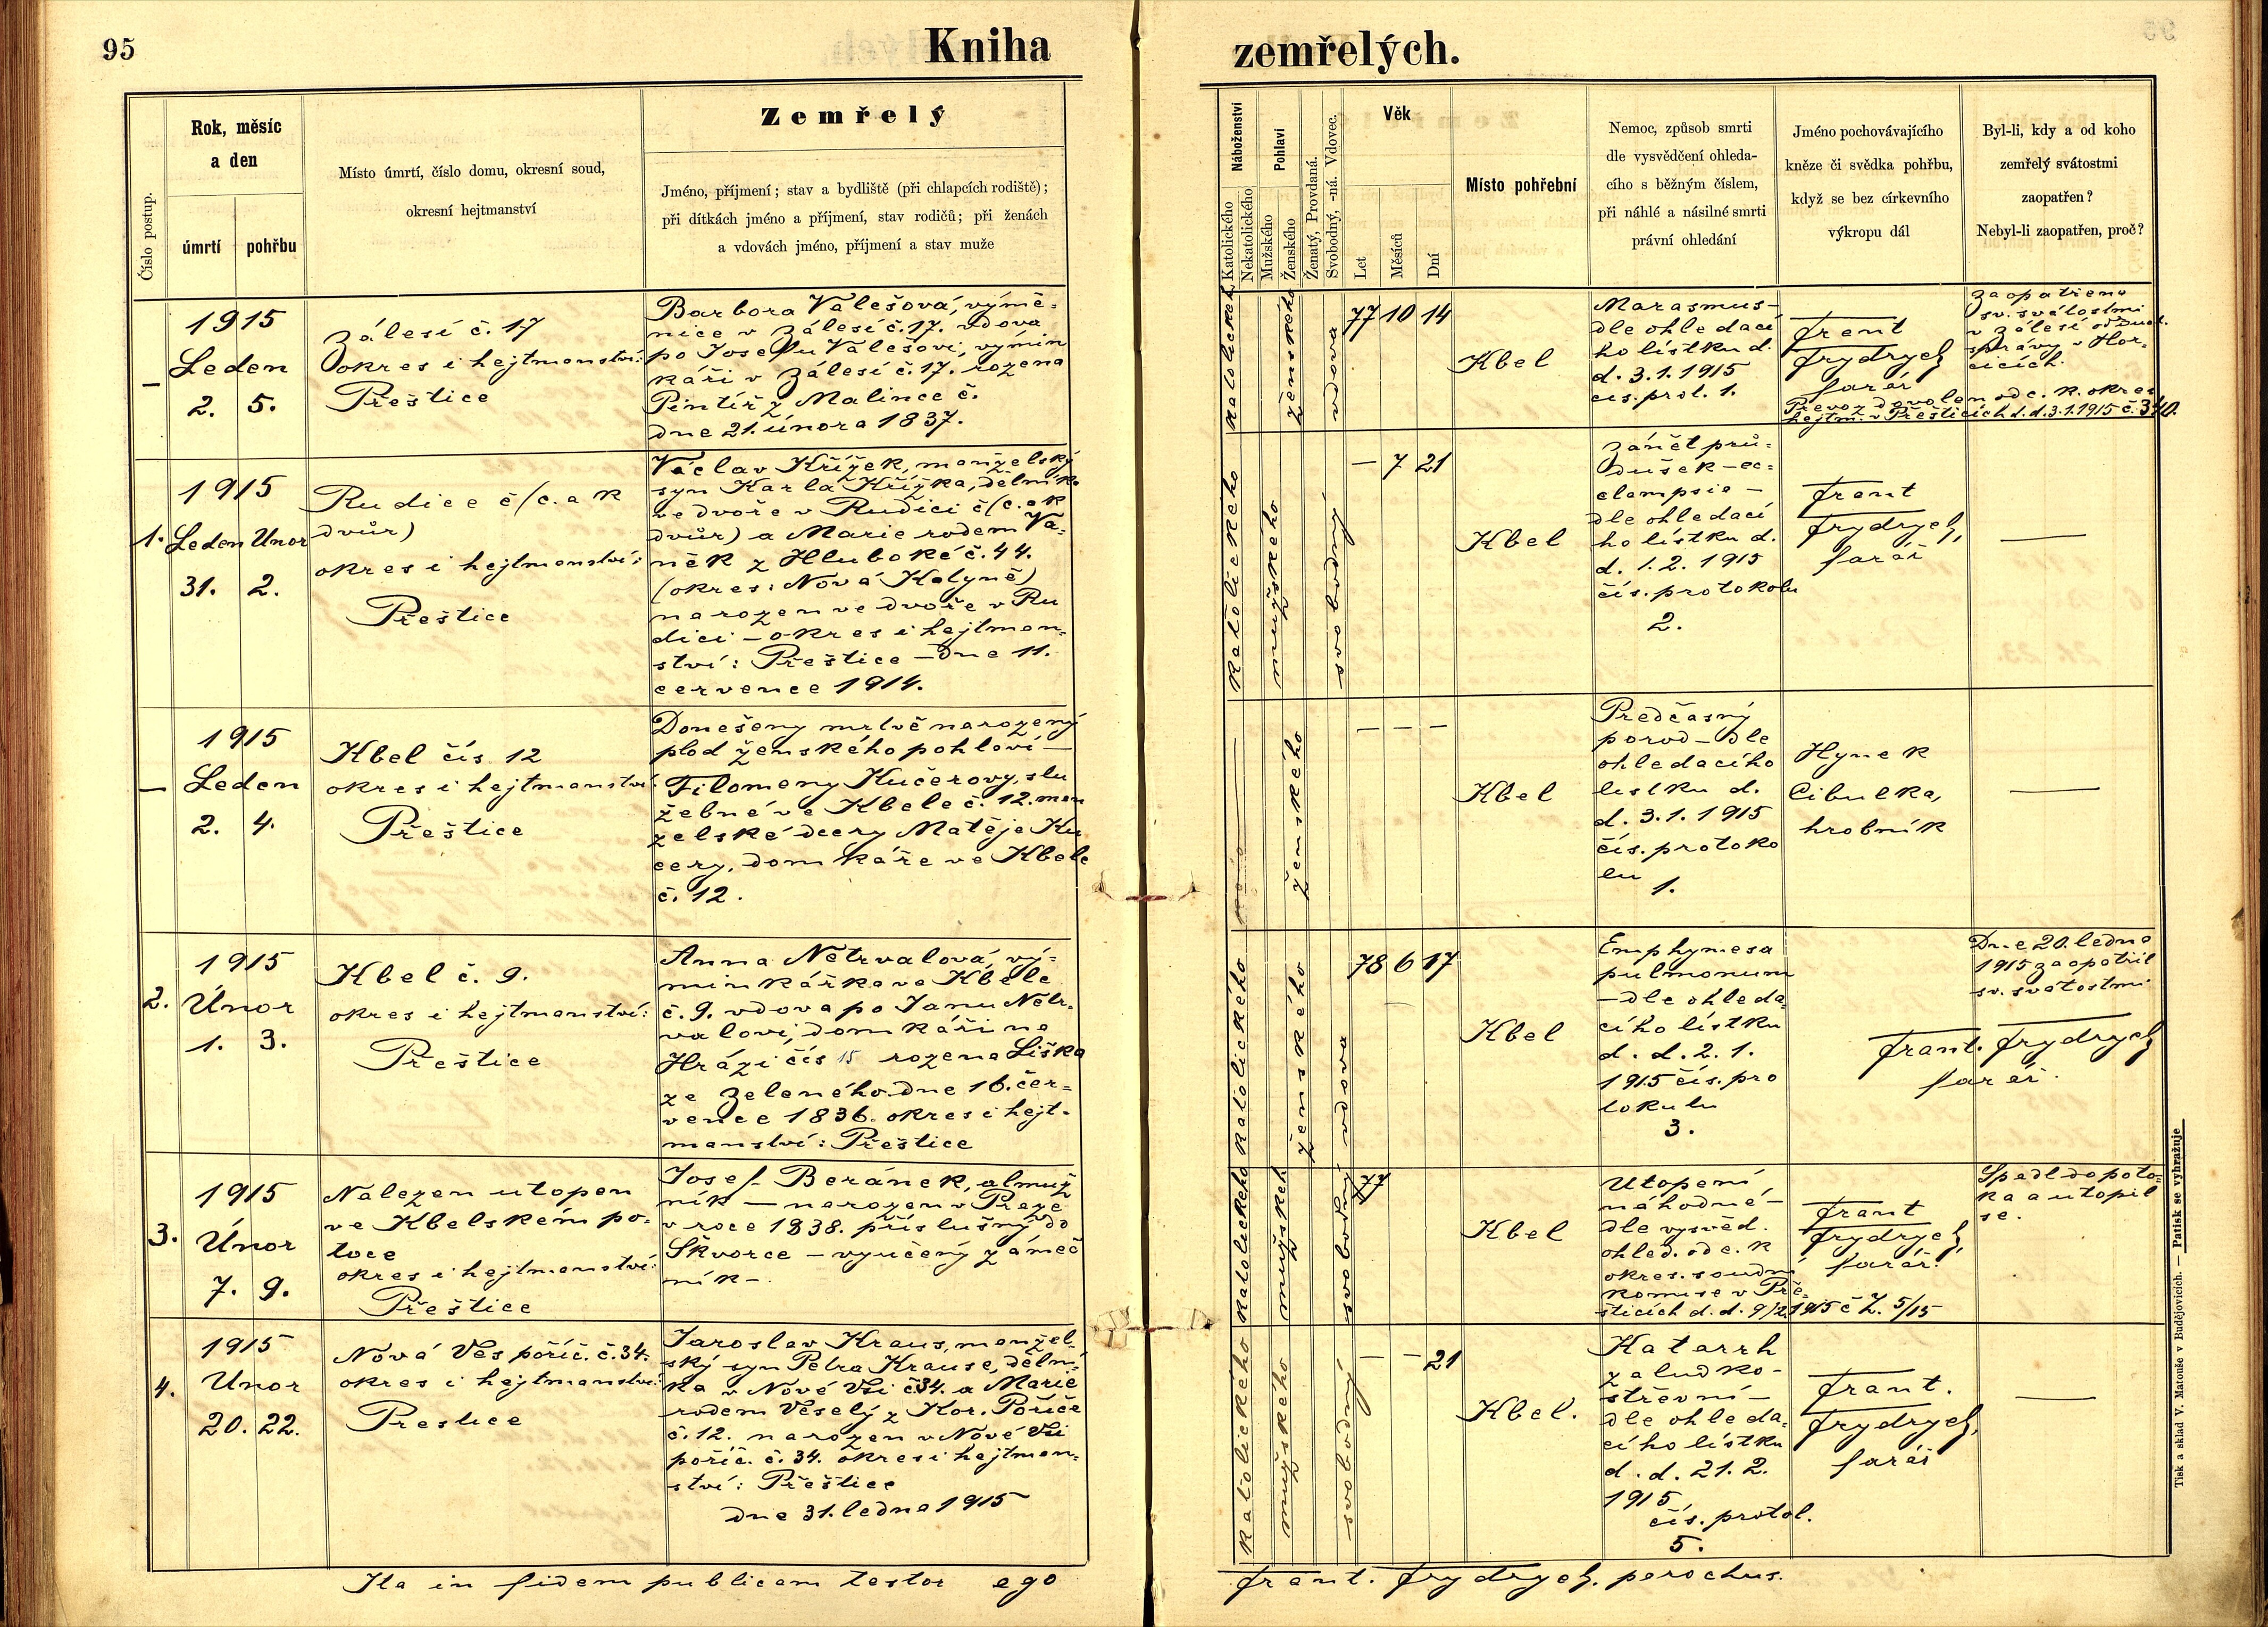 95
Kniha
zemřelých.
Číslo postup.
Rok, měsíc
a den
úmrtí
pohřbu
Místo úmrtí, číslo domu, okresní soud,
okresní hejtmanství
Zemřelý
Jméno, příjmení; stav a bydliště (při chlapcích rodiště);
při dítkách jméno a příjmení, stav rodičů; při ženách
a vdovách jméno, příjmení a stav muže
Náboženství
Katolického
Nekatolického
Pohlaví
Mužského
Ženského
Ženatý, Provdaná.
Svobodný, -ná. Vdovec.
Věk
Let
Měsíců
Dní
Místo pohřební
Nemoc, způsob smrti
dle vysvědčení ohleda-
cího s běžným číslem,
při náhlé a násilné smrti
právní ohledání
Jméno pochovávajícího
kněze či svědka pohřbu,
když se bez církevního
výkropu dál
Byl-li, kdy a od koho
zemřelý svátostmi
zaopatřen?
Nebyl-li zaopatřen, proč?
—
1915
Leden
2. 5.
Zálesí č. 17
okres i hejtmanství:
Přeštice
Barbora Valešová, výmě-
nice v Zálesí č. 17. vdova
po Josefu Valešovi, výmin
káři v Zálesí č. 17. rozena
Pintíř z Malince č.
dne 21. února 1837.
katolického
ženského
vdova
77 10 14
Kbel
Marasmus-
dle ohledací
ho lístku d.
d. 3. 1. 1915
čís. prot. 1.
Frant
Frydrych
farář
Převoz dovolen od c. k. okres
hejtm. v Přešticích d. d. 3. 1. 1915 č. 340.
Zaopatřena
sv. svátostmi
v Zálesí od Duch.
správy v Hor-
šicích.
1.
1915
Leden Únor
31. 2.
Rudice č (c. a k
dvůr)
okres i hejtmanství:
Přeštice
Václav Křížek, manželský
syn Karla Křížka, dělníka
ve dvoře v Rudici č (c. a k
dvůr) a Marie rodem Va-
něk z Hluboké č. 44.
(okres: Nová Kdyně)
narozen ve dvoře v Ru
dici – okres i hejtman-
ství: Přeštice – dne 11.
července 1914.
katolického
mužského
svobodný
— 7 21
Kbel
Zánět prů-
dušek – ec-
clampsie –
dle ohledací
ho lístku d.
d. 1. 2. 1915
čís. protokolu
2.
Frant
Frydrych,
farář
—
—
1915
Leden
2. 4.
Kbel čís 12
okres i hejtmanství
Přeštice
Donešený mrtvě narozený
plod ženského pohlaví –
Filomeny Kučerovy, slu
žebné ve Kbele č. 12. man
želské dcery Matěje Ku
čery, domkáře ve Kbele
č. 12.
ženského
— — —
Kbel
Předčasný
porod – dle
ohledacího
lístku d.
d. 3. 1. 1915
čís. protoko
lu
1.
Hynek
Cibulka,
hrobník
—
2.
1915
Únor
1. 3.
Kbel č. 9.
okres i hejtmanství:
Přeštice
Anna Netrvalová, vý-
minkářka ve Kbele
č. 9. vdova po Janu Netr-
valovi, domkáři na
Hrázi čís 15 rozena Liška
ze Zeleného dne 16. čer-
vence 1836. okres i hejt-
manství: Přeštice
katolického
ženského
vdova
78 6 17
Kbel
Emphymesa
pulmonum
– dle ohleda-
cího lístku
d. d. 2. 1.
1915 čís. pro
tokulu
3.
Dne 20. ledna
1915 zaopatřil
sv. svátostmi
Frant. Frydrych
farář.
3.
1915
Únor
7. 9.
Nalezen utopen
ve Kbelském po-
toce
okres i hejtmanství:
Přeštice
Josef Beránek, almuž
ník – narozen v Praze
v roce 1838. příslušný do
Škvorce – vyučený zámeč
ník –.
katolického
mužskéh
svobodný
77
Kbel
Utopení
náhodné –
dle vysvěd.
ohled. od c. k
okres. soudní
komise v Pře-
šticích d. d. 9/2 1915 č Z. 5/15
Frant
Frydrych,
farář.
Spadl do poto-
ka a utopil
se.
4.
1915
Únor
20. 22.
Nová Ves poříč. č. 34.
okres i hejtmanství:
Přeštice
Jaroslav Kraus, manžel-
ský syn Petra Krause, dělní-
ka v Nové Vsi č 34. a Marie
rodem Veselý z Hor. Poříče
č. 12. narozen v Nové Vsi
poříč. č. 34. okres i hejtman-
ství: Přeštice
dne 31. ledna 1915
katolického
mužského
svobodný
— — 21
Kbel.
Katarrh
žaludko-
střevní –
dle ohleda-
cího lístku
d. d. 21. 2.
1915
čís. protol.
5.
Frant.
Frydrych,
farář
—
Ita in fidem publicam testor ego
Frant. Frydrych. parochus.
Tisk a sklad V. Matouše v Budějovicích. — Patisk se vyhražuje